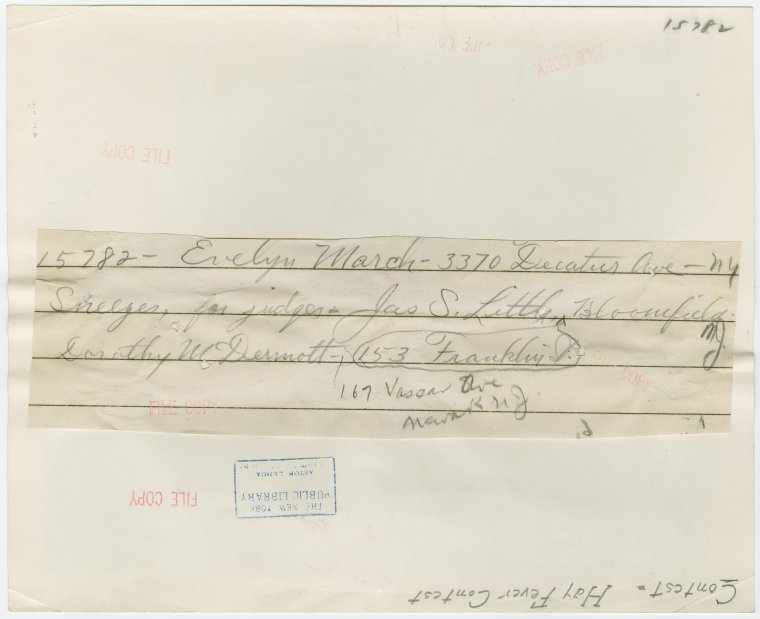 15782
FILE COPY
FILE COPY
15782- Evelyn March - 3370 Decatur Ave - NY
Sneezes, for judges - Jas S. Little, Bloomfield
NJ
Dorothy McDermott, 153 Franklin
FILE COPY
167 Vassar Ave
Newark N J.
FILE COPY
FILE COPY
THE NEW YORK
PUBLIC LIBRARY
ASTOR LENOX
Contest = Hay Fever Contest